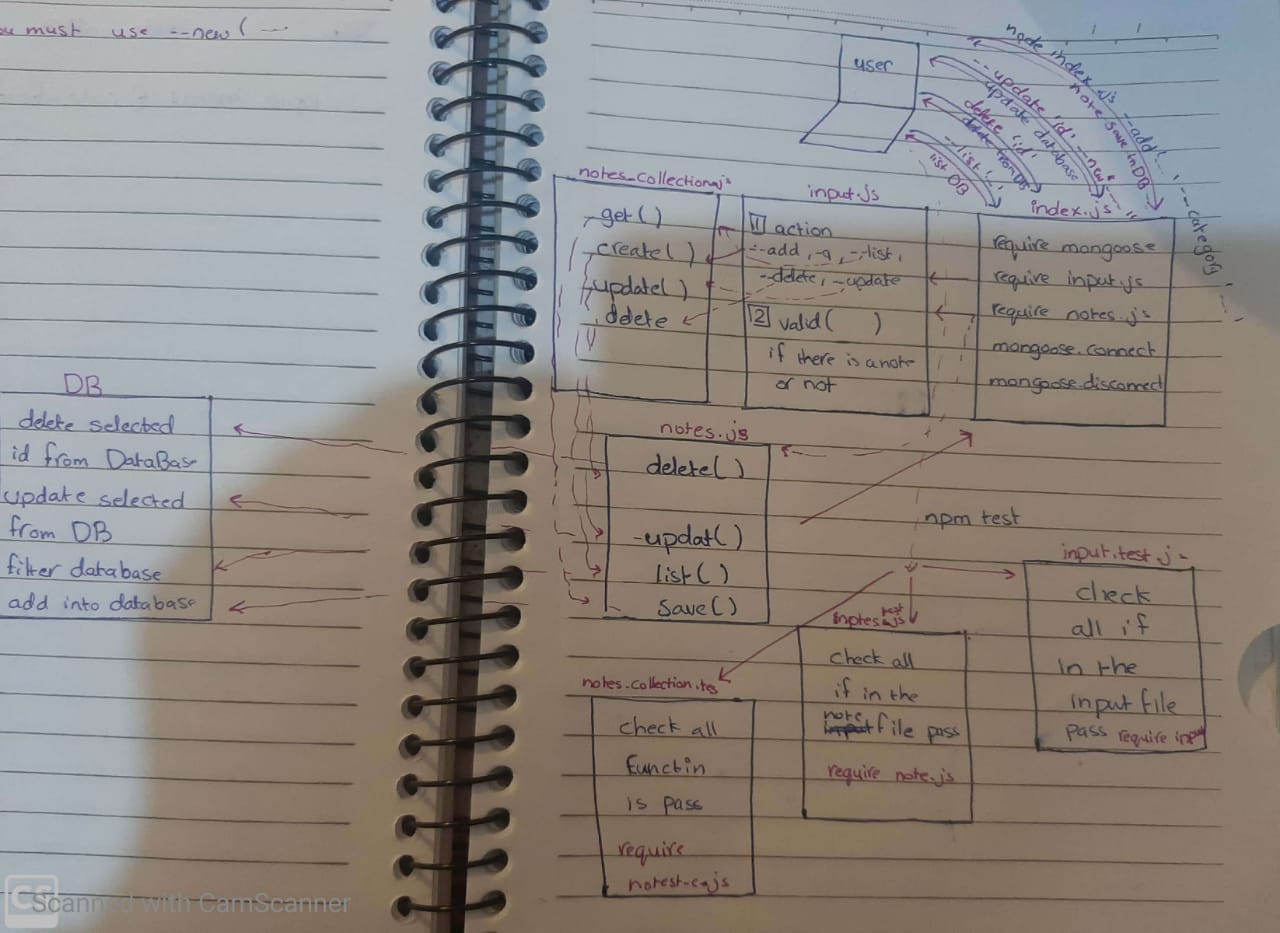 must use --new(
DB
delete selected
id from DataBase
update selected
from DB
filter database
add into database
user
node index.js --add ' ' --category
note save in DB
--update 'id' --new"
update database
delete 'id'
delete from DB
--list ' '
list DB
notes_collection.js
get()
create()
update()
delete
input.js
1 action
--add, -a, --list,
--delete, --update
2 valid( )
if there is a note
or not
index.js
require mongoose
require input.js
require notes.js
mongoose.connect
mongoose.disconnect
notes.js
delete()
-updat()
list()
save()
npm test
input.test.j
check
all if
in the
input file
pass require inp
test
check all
if in the
note
file pass
require note.js
notes-collection.tes
check all
functin
is pass
require
Scanned with CamScanner
CS